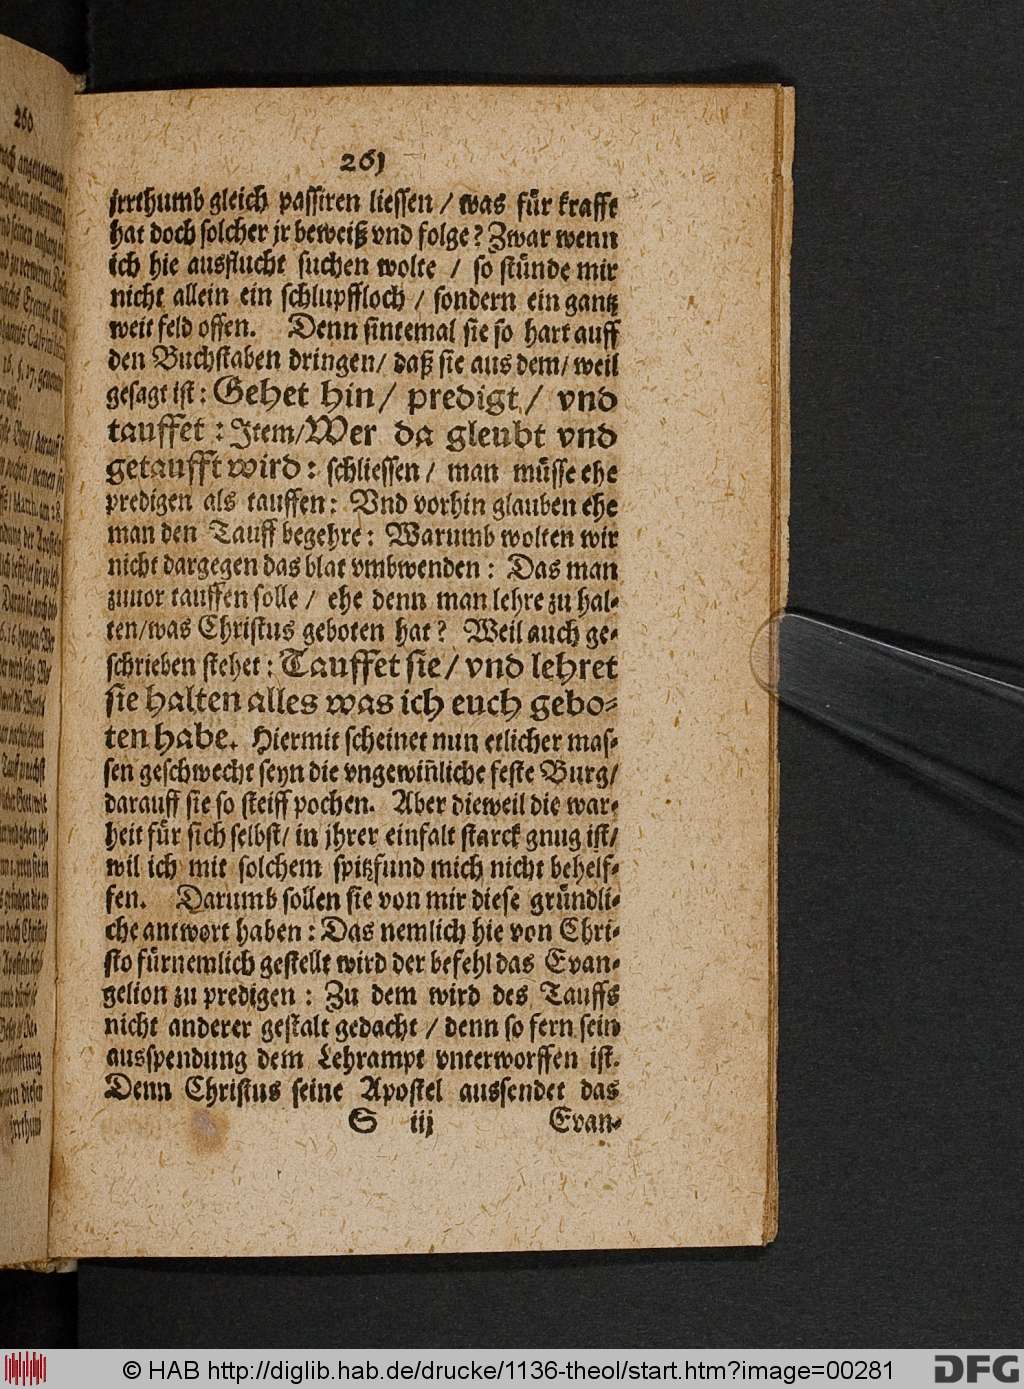 261
jrrthumb gleich passiren liessen / was für krafft
hat doch solcher jr beweiß vnd folge? Zwar wenn
ich hie ausflucht suchen wolte / so stünde mir
nicht allein ein schlupffloch / sondern ein gantz
weit feld offen. Denn sintemal sie so hart auff
den Buchstaben dringen / daß sie aus dem / weil
gesagt ist: Gehet hin / predigt / vnd
tauffet: Item / Wer da gleubt vnd
getaufft wird: schliessen / man müsse ehe
predigen als tauffen: Vnd vorhin glauben ehe
man den Tauff begehre: Warumb wolten wir
nicht dargegen das blat vmbwenden: Das man
zuuor tauffen solle / ehe denn man lehre zu hal-
ten / was Christus geboten hat? Weil auch ge-
schrieben stehet: Tauffet sie / vnd lehret
sie halten alles was ich euch gebo-
ten habe. Hiermit scheinet nun etlicher mas-
sen geschwecht seyn die vngewiñliche feste Burg /
darauff sie so steiff pochen. Aber dieweil die war-
heit für sich selbst / in jhrer einfalt starck gnug ist /
wil ich mit solchem spitzfund mich nicht behelf-
fen. Darumb sollen sie von mir diese gründli-
che antwort haben: Das nemlich hie von Chri-
sto fürnemlich gestellt wird der befehl das Evan-
gelion zu predigen: Zu dem wird des Tauffs
nicht anderer gestalt gedacht / denn so fern sein
ausspendung dem Lehrampt vnterworffen ist.
Denn Christus seine Apostel aussendet das
S iij Evan-
260
© HAB http://diglib.hab.de/drucke/1136-theol/start.htm?image=00281
DFG